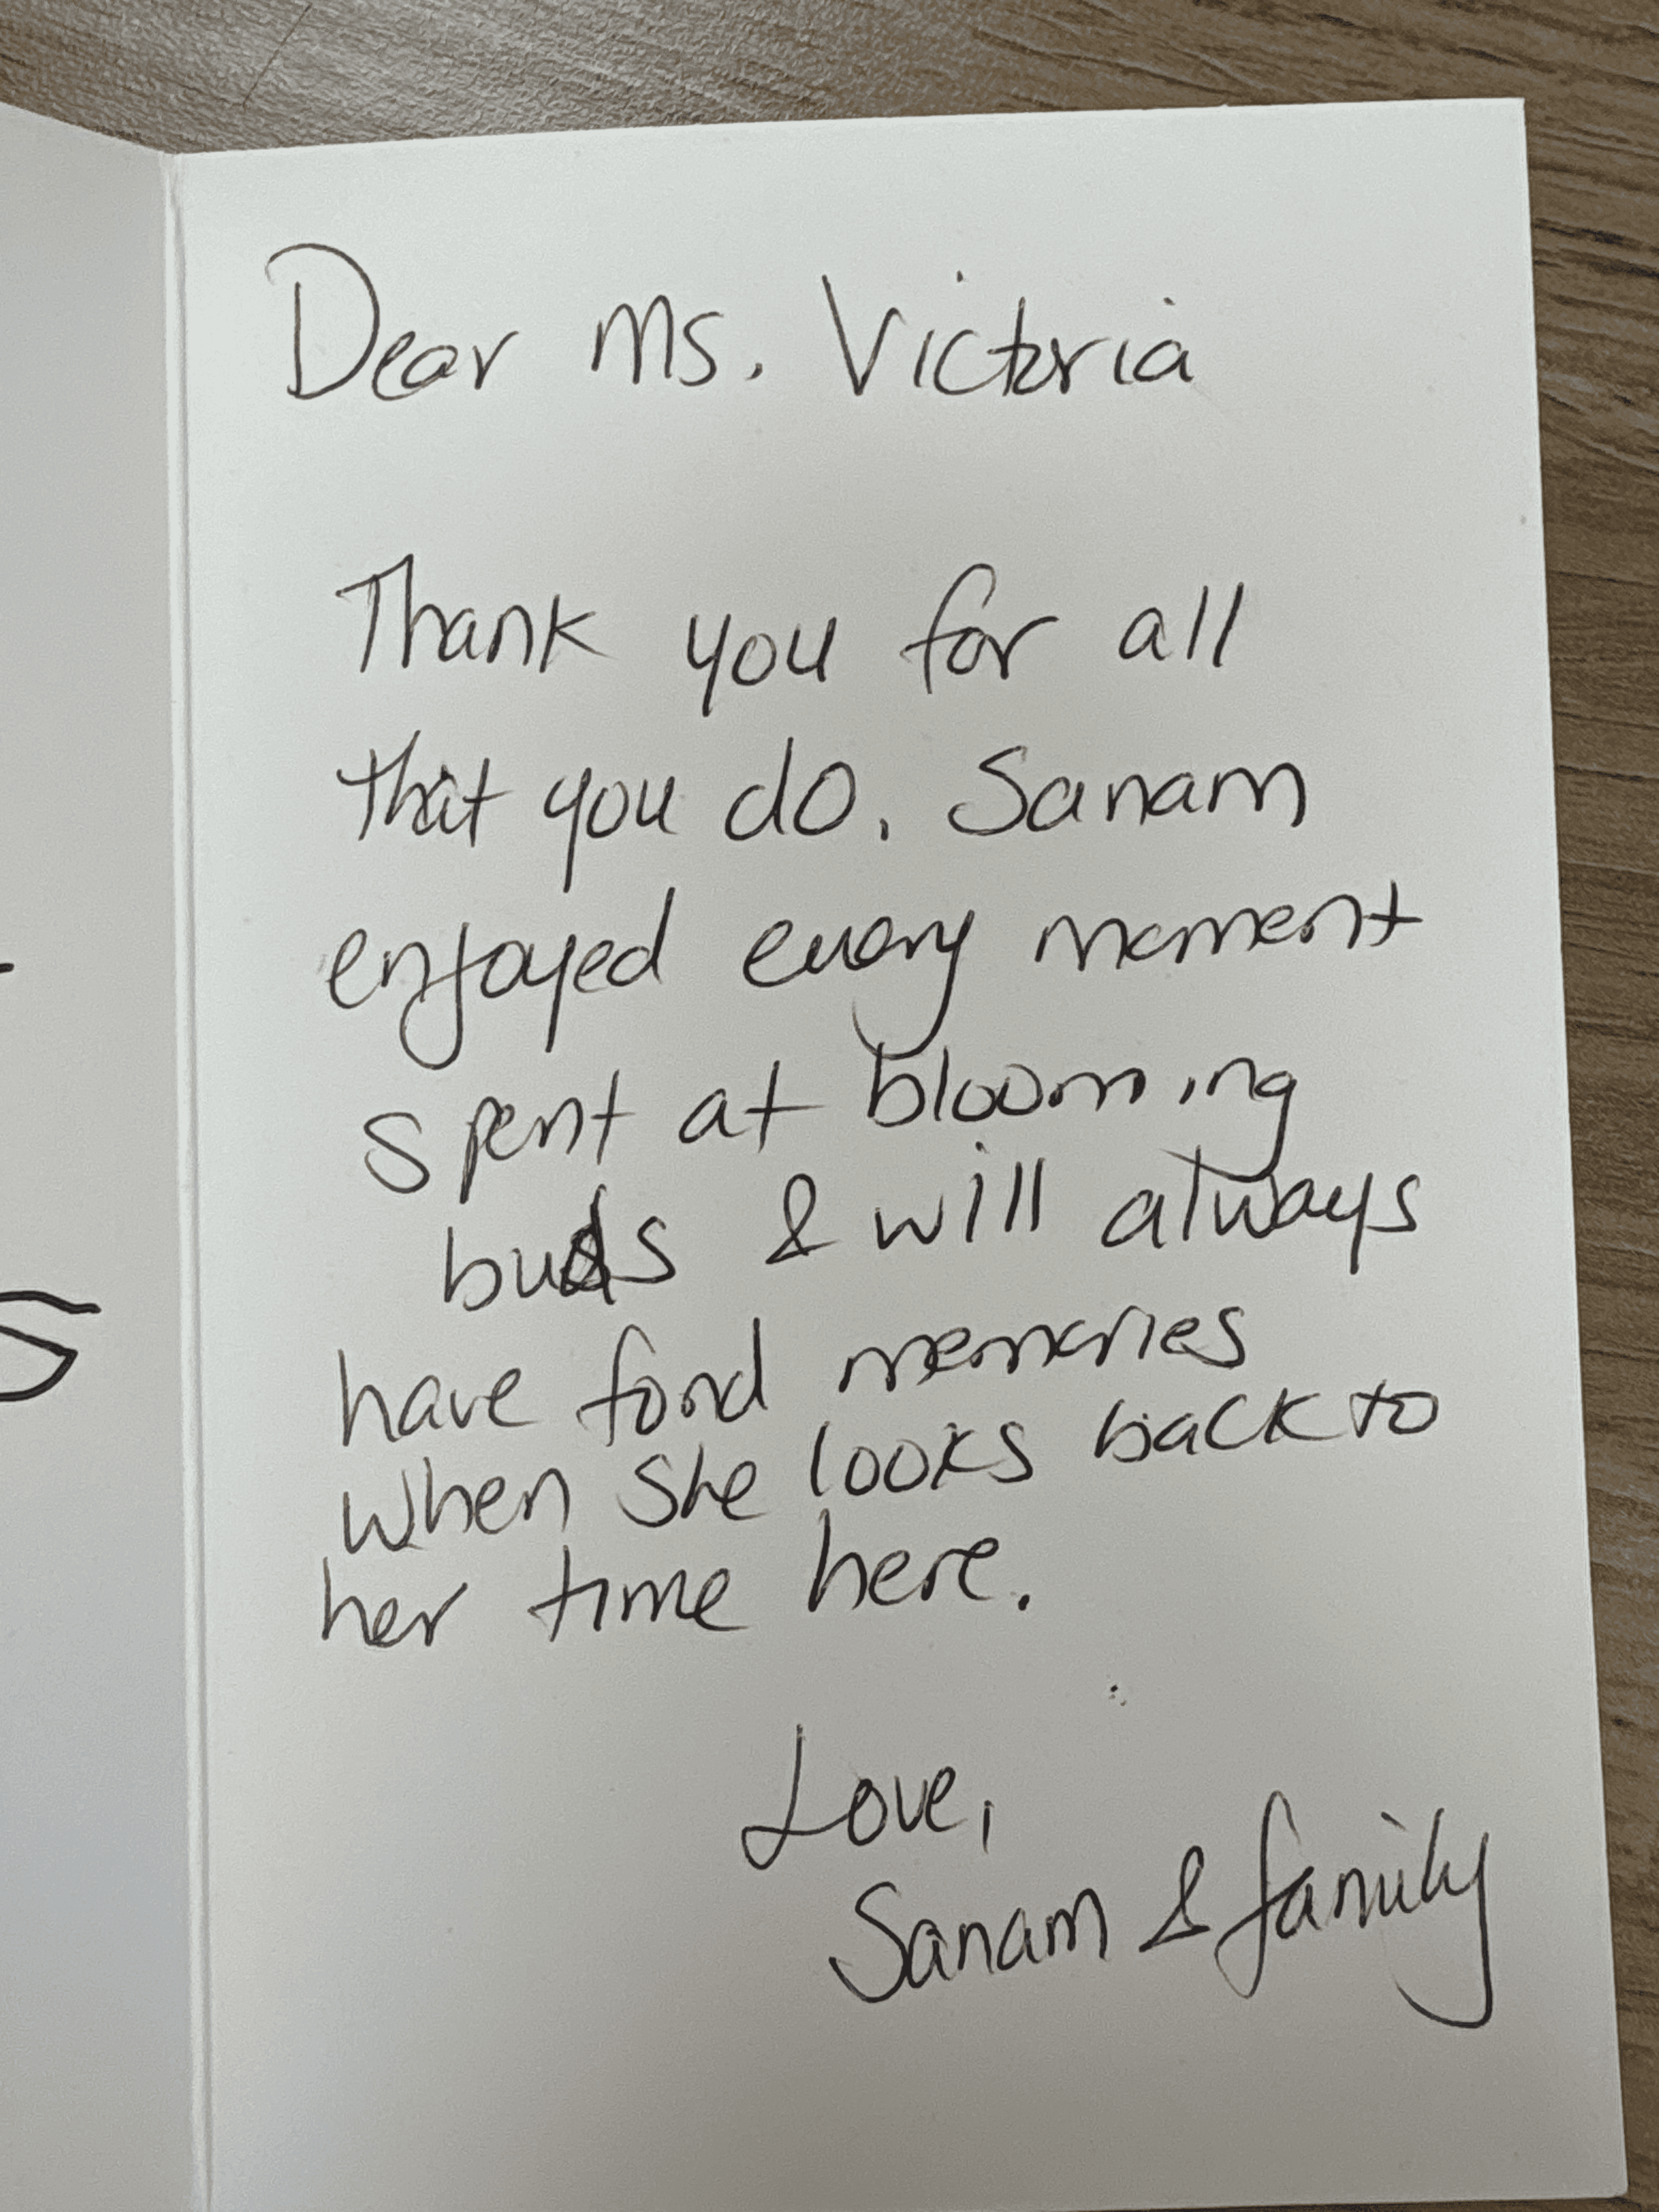 Dear Ms. Victoria
Thank you for all
that you do. Sanam
enjoyed every moment
spent at blooming
buds & will always
have fond memories
when she looks back to
her time here.
Love,
Sanam & family